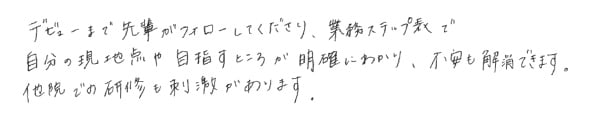 デビューまで先輩がフォローしてくださり、業務ステップ表で
自分の現地点や目指すところが明確にわかり、不安も解消できます。
他院での研修も刺激があります。